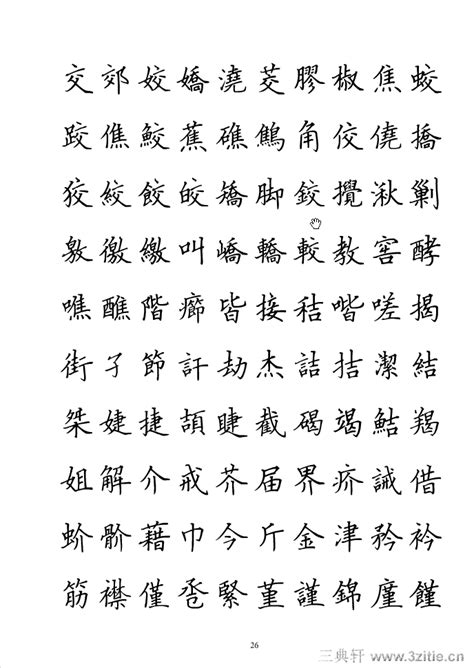 交郊姣嬌澆茭膠椒焦蛟
跤僬鮫蕉礁鷦角佼僥撟
狡絞餃皎矯腳鉸攪湫剿
敫徼繳叫嶠轎較教窖酵
噍醮階癤皆接秸喈嗟揭
街孑節訐劫杰詰拮潔結
桀婕捷頡睫截碣竭鮚羯
姐解介戒芥届界疥誡借
蚧骱藉巾今斤金津矜衿
筋襟僅巹緊堇謹錦廑饉
26
三典轩 www.3zitie.cn